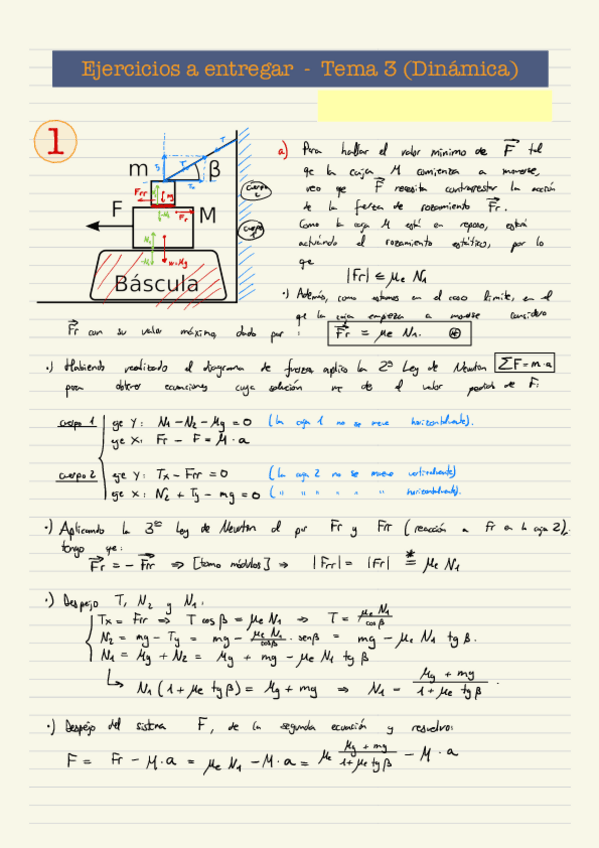 Ejercicios a entregar - Tema 3 (Dinámica)
1
m
β
F
M
Báscula
T
Ty
Tx
Frr
mg
Fr
N1
w=Mg
cuerpo 2
cuerpo 1
a) Para hallar el valor mínimo de F tal
qe la caja M comienza a moverse,
veo qe F necesita contrarrestar la acción
de la fuerza de rozamiento Fr.
Como la caja M está en reposo, estará
actuando el rozamiento estático, por lo
qe
|Fr| ≤ μe N1
·) Además, como estamos en el caso límite, en el
qe la caja empieza a moverse considero
Fr con su valor máximo, dado por : Fr = μe N1. ⊛
·) Habiendo realizado el diagrama de fuerzas aplico la 2ª Ley de Newton ΣF=m·a
para obtener ecuaciones cuya solución me de el valor pedido de F:
cuerpo 1 eje Y: N1-N2-Mg=0 (la caja 1 no se mueve horizontalmente).
eje X: Fr - F = M·a
cuerpo 2 eje Y: Tx-Frr=0 (la caja 2 no se mueve verticalmente)
eje X: N2 + Ty - mg = 0 (" " " " " horizontalmente).
·) Aplicando la 3ª Ley de Newton al par Fr y Frr (reacción a Fr en la caja 2),
tengo qe:
Fr = - Frr ⇒ [tomo módulos] ⇒ |Frr| = |Fr| =* μe N1
·) Despejo T, N2 y N1:
Tx = Frr ⇒ T cos β = μe N1 ⇒ T = μe N1 / cos β
N2 = mg - Ty = mg - μe N1 / cosβ · senβ = mg - μe N1 tg β.
N1 = Mg + N2 = Mg + mg - μe N1 tg β
↳ N1 (1 + μe tg β) = Mg + mg ⇒ N1 = Mg + mg / 1 + μe tg β.
·) Despejo del sistema F, de la segunda ecuación y resuelvo:
F = Fr - M·a = μe N1 - M·a = μe Mg + mg / 1 + μe tg β - M·a